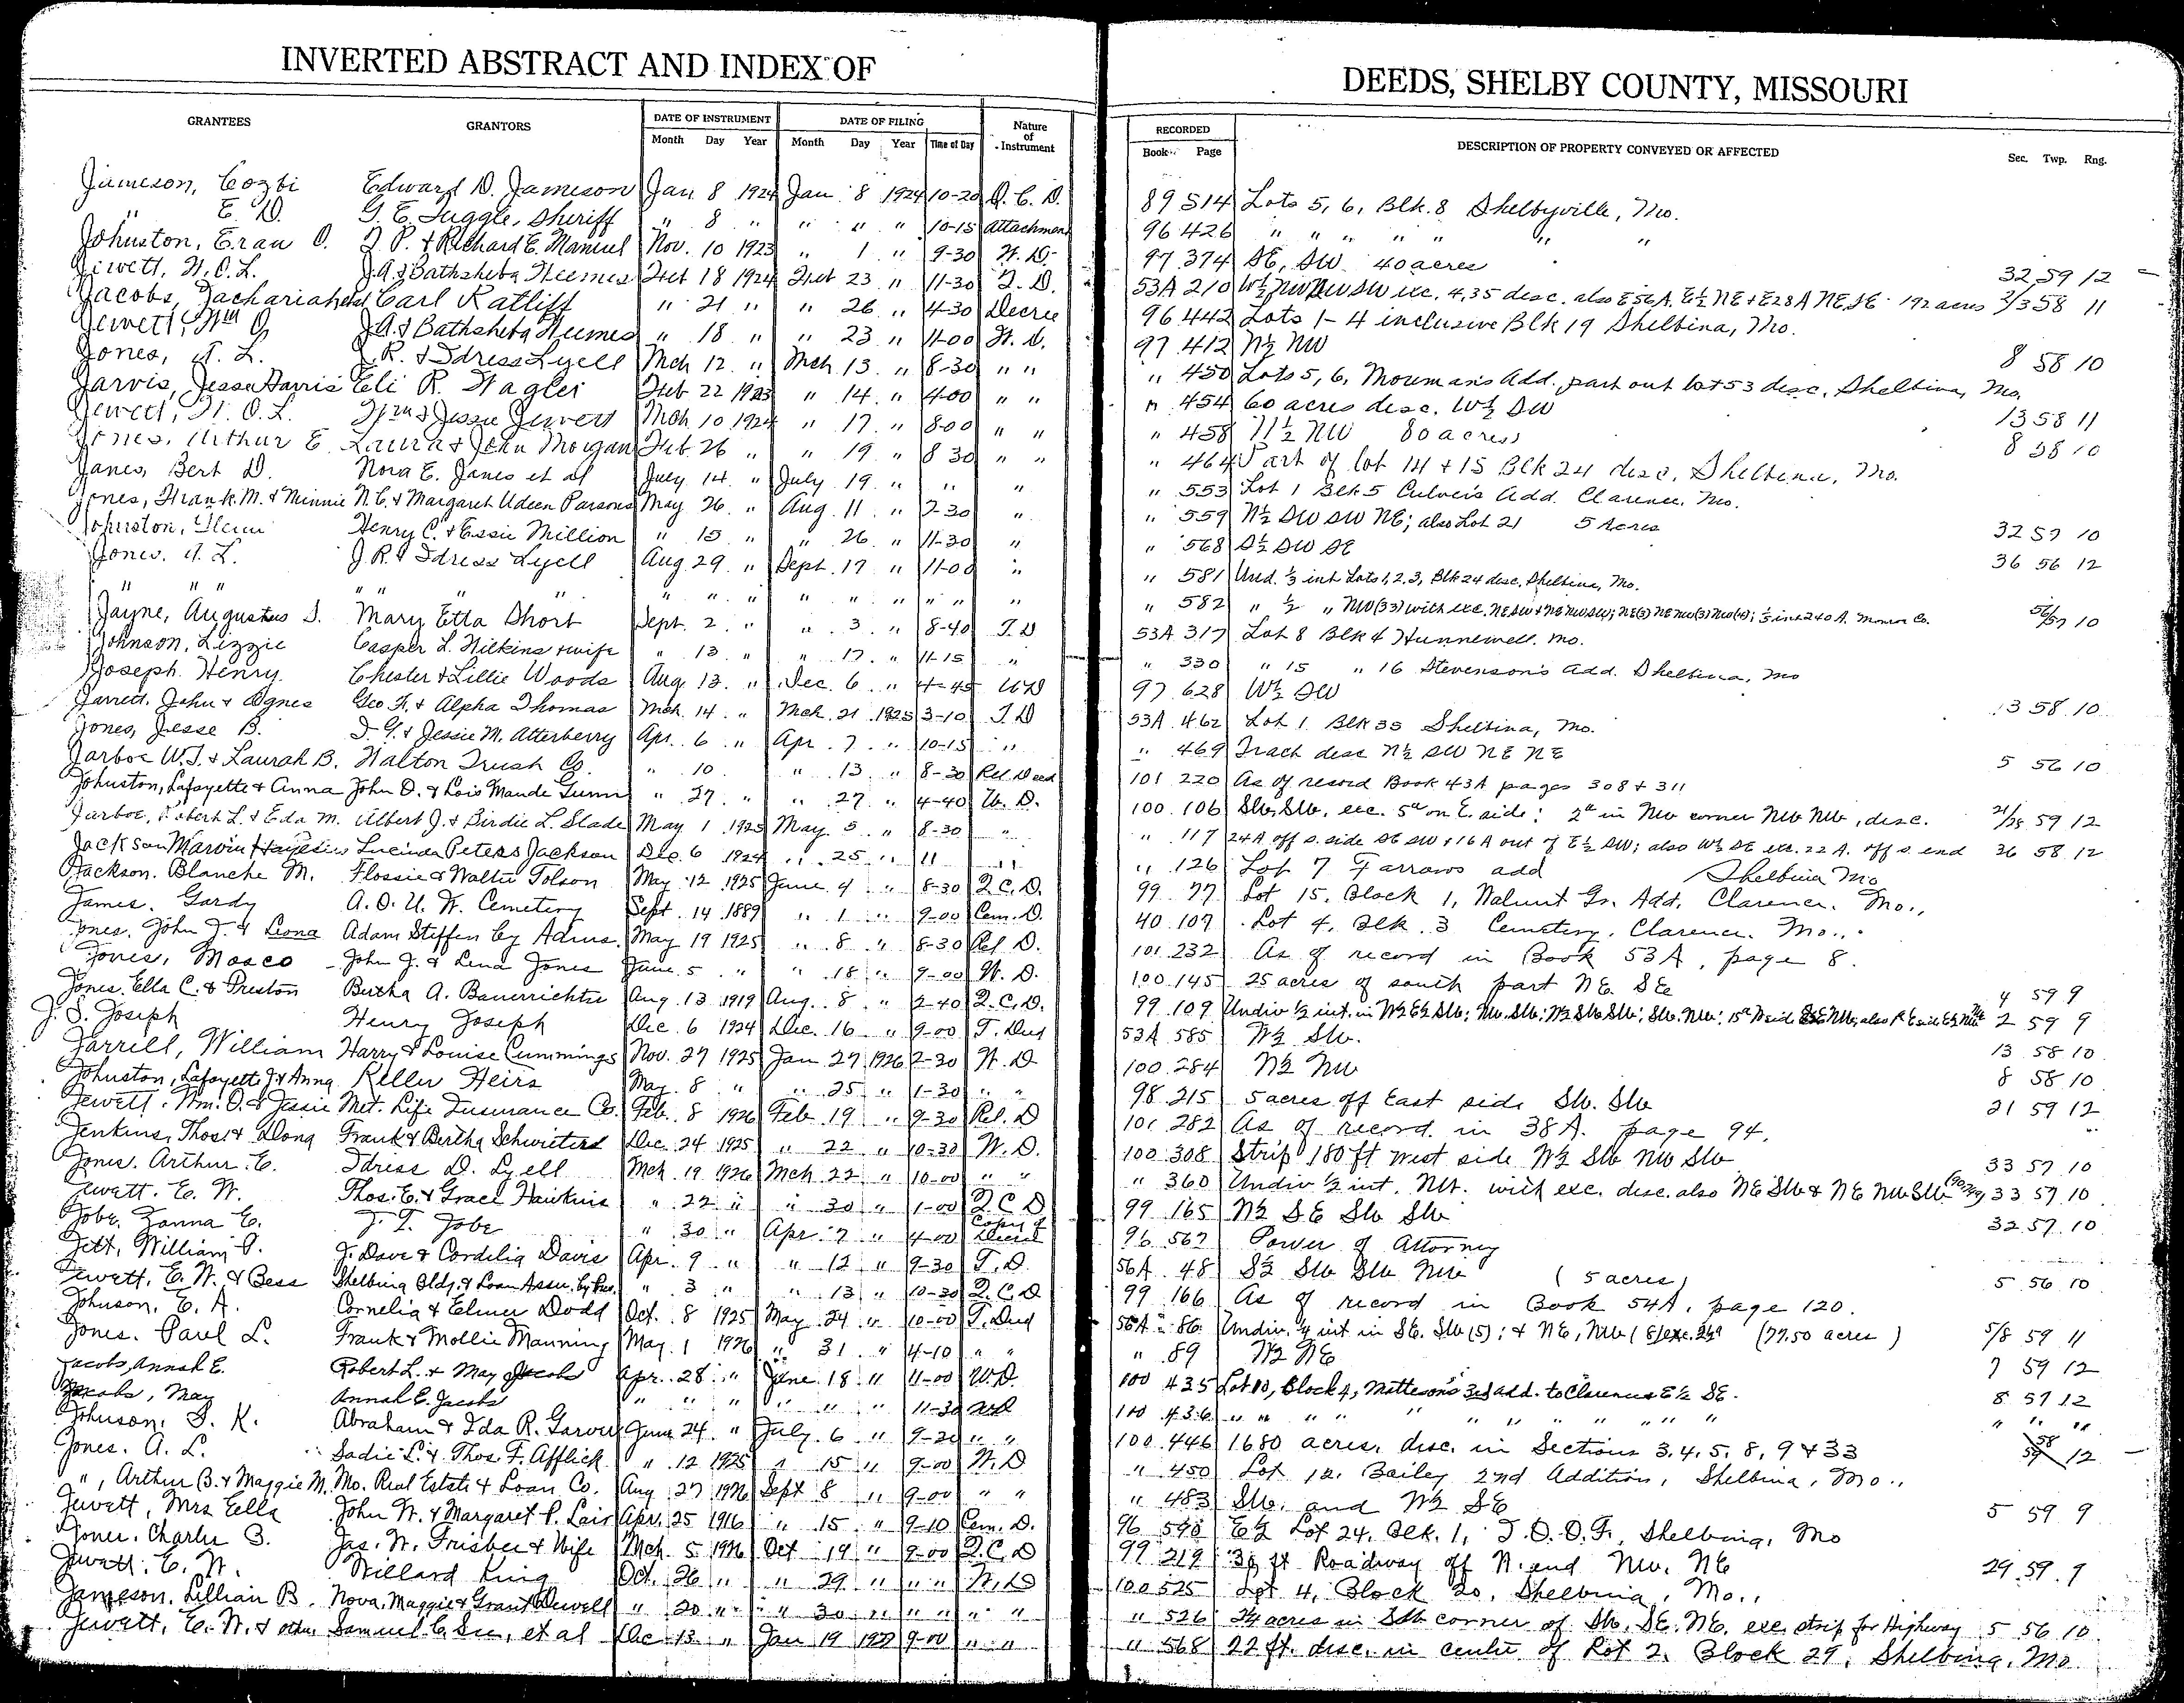 INVERTED ABSTRACT AND INDEX OF DEEDS, SHELBY COUNTY, MISSOURI
GRANTEES GRANTORS DATE OF INSTRUMENT Month Day Year DATE OF FILING Month Day Year Time of Day Nature of Instrument RECORDED Book Page DESCRIPTION OF PROPERTY CONVEYED OR AFFECTED Sec. Twp. Rng.
Jameson, Cozbi Edward D. Jameson Jan. 8 1924 Jan. 8 1924 10-20 Q. C. D. 89 514 Lots 5, 6, Blk. 8 Shelbyville, Mo.
" E. D. G. E. Tuggle, Sheriff " 8 " " " " 10-15 Attachment 96 426 " " " " " " "
Johnston, Eran O. J. P. & Richard E. Manuel Nov. 10 1923 " 1 " 9-30 W. D. 97 374 SE, SW 40 acres 32 59 12
Jewett, W. O. L. J. A. & Bathsheba Humes Feb 18 1924 Feb 23 " 11-30 T. D. 53A 210 W½ NW NW SW exc. 4,35 desc. also E 56 A. E½ NE & E 28 A NE SE 192 acres 2/3 58 11
Jacobs, Zachariah Carl Ratliff " 21 " " 26 " 4-30 Decree 96 442 Lots 1-4 inclusive Blk 19 Shelbina, Mo.
Jewett, Wm O. J. A. & Bathsheba Humes " 18 " " 23 " 11-00 W. D. 97 412 N½ NW 8 58 10
Jones, A. L. J. R. & Idress Lyell Mch 12 " Mch. 13 " 8-30 " " " 450 Lots 5, 6, Mouman's Add. part out lot 53 desc. Shelbina, Mo.
Jarvis, Jesse Harris Eli R. Wagler Feb 22 1923 " 14 " 4-00 " " " 454 60 acres desc. W½ SW 13 58 11
Jewett, W. O. L. Wm & Jessie Jewett Mch 10 1924 " 17 " 8-00 " " " 458 N½ NW 80 acres 8 58 10
Jones, Arthur E. Laura & John Morgan Feb 26 " " 19 " 8 30 " " " 464 Part of lot 14 & 15 Blk 24 desc. Shelbina, Mo.
Janes, Bert D. Nora E. Janes et al July 14 " July 19 " " " " 553 Lot 1 Blk 5 Culver's Add. Clarence, Mo.
Jones, Frank M. & Minnie N. C. & Margaret Udeen Parsons May 26 " Aug. 11 " 2-30 " " 559 N½ SW SW NE; also Lot 21 5 Acres 32 57 10
Johnston, Henry C. & Essie Million " 15 " " 26 " 11-30 " " 568 S½ SW SE 36 56 12
Jones. A. L. J. R. & Idress Lyell Aug 29 " Sept. 17 " 11-00 " " 581 Und. ⅓ int Lots 1, 2, 3, Blk 24 desc, Shelbina, Mo.
" " " " " " " " " " " " " " " 582 " ½ " NW (33) with exc. NE SW & NE NW SW; NE(3) NE NW(3) NW(4); ⅓ int 240 A. Monroe Co. 56/57 10
Jayne, Augustus S. Mary Etta Short Sept. 2 " " 3 " 8-40 T. D 53A 317 Lot 8 Blk 4 Hunnewell. Mo.
Johnson, Lizzie Casper L. Wilkins & wife " 13 " " 17 " 11-15 " " 330 " 15 " 16 Stevenson's Add. Shelbina, Mo
Joseph. Henry Chester & Lillie Woods Aug. 13. " Dec. 6 " 4-45 WD 97 628 W½ SW 13 58 10
Jarrett, John & Agnes Geo F. & Alpha Thomas Mch. 14 " Mch. 21 1925 3-10 T. D 53A 462 Lot 1. Blk 35 Shelbina, Mo.
Jones, Jesse B. I. G. & Jessie M. Atterberry Apr. 6 " Apr. 7 " 10-15 " " 469 Tract desc N½ SW NE NE 5 56 10
Jarboe W. T. & Laurah B. Walton Trust Co. " 10 " 13 " 8-30 Rel Deed 101 220 As of record Book 43A pages 308 & 311
Johnston, Lafayette & Anna John D. & Lois Maude Gunn " 27 " " 27 " 4-40 W. D. 100 106 SW, SW, exc. 5a on E. side; 2a in NW corner NW NW, desc. 21/28 59 12
Jarboe, Robert L. & Eda M. Albert J. & Birdie L. Slade May 1 1925 May 5 " 8-30 " " 117 24A off S. side SE SW & 16A out of E½ SW; also W½ SE exc. 22 A. off S. end 36 58 12
Jackson Marvin Lucinda Peters Jackson Dec. 6 1924 " 25 " 11 " " 126 Lot 7 Farrows add Shelbina Mo
Jackson. Blanche M. Flossie & Walter Tolson May 12 1925 June 4 " 8-30 Q. C. D. 99 77 Lot 15, Block 1, Walnut Gr. Add, Clarence. Mo.,
James. Gardy A. O. U. W. Cemetery Sept. 14 1889 " 1 " 9-00 Cem. D. 40 107 Lot 4, Blk. 3 Cemetery, Clarence. Mo..
Jones. John J. & Leona Adam Steffen by Adms. May 19 1925 " 8 " 8-30 Rel D. 101 232 As of record in Book 53A, page 8.
Jones, Mosco John J. & Lena Jones June 5 " " 18 " 9-00 W. D. 100 145 25 acres of south part NE. SE 4 59 9
Jones. Ella C. & Preston Bertha A. Bauerrichter Aug. 13 1919 Aug. 8 " 2-40 Q. C. D. 99 109 Undiv ½ int. in W½ E½ SW; NW. SW; W½ SW SW; SW. NW; 2 59 9
J. S. Joseph Henry Joseph Dec. 6 1924 Dec. 16 " 9-00 T. Deed 53A 585 W½ SW. 13 58 10
Jarrell, William Harry & Louise Cummings Nov. 27 1925 Jan 27 1926 2-30 W. D 100 284 N½ NW 8 58 10
Johnston, Lafayette J. & Anna Keller Heirs May. 8 " " 25 " 1-30 " " 98 215 5 acres off East side SW. SW 21 59 12
Jewett. Wm. O. & Jessie Met. Life Insurance Co. Feb. 8 1926 Feb 19 " 9-30 Rel. D 101 282 As of record in 38A. page 94.
Jenkins, Thos. & Dona Frank & Bertha Schwieters Dec. 24 1925 " 22 " 10-30 W. D. 100 308 Strip 180 ft west side W½ SW NW SW 33 57 10
Jones. Arthur E. Idress D. Lyell Mch 19 1926 Mch 22 " 10-00 " " " 360 Undiv ½ int. NW. with exc. desc. also NE SW & NE NW SW 33 57 10
Jewett. E. W. Thos. E. & Grace Hawkins " 22 " " 30 " 1-00 Q C D 99 165 N½ SE SW SW 32 57 10
Jobe. Zanna E. J. T. Jobe " 30 " Apr 7 " 4-00 Copy of 96 567 Power of Attorney
Jett, William J. Dave & Cordelia Davis Apr. 9 " " 12 " 9-30 T. D. 56A 48 S½ SW SW NW (5 acres) 5 56 10
Jewett. E. W. & Bess Shelbina Bldg. & Loan Assn. by Pres. " 3 " " 13 " 10-30 Q. C. D 99 166 As of record in Book 54A, page 120.
Johnson. E. A. Cornelia & Elmer Dodd Oct. 8 1925 May 24 " 10-00 T. Deed 56A 86 Undiv. ¼ int in SE. SW (5); & NE, NW (8) exc. 2½a (77.50 acres) 5/8 59 11
Jones. Paul L. Frank & Mollie Manning May. 1 1926 " 31 " 4-10 " " " 89 W½ NE 7 59 12
Jacobs, Annah E. Robert L. & May Jacobs Apr. 28 " June 18 " 11-00 W. D. 100 435 Lot 10, Block 4, Matteson's 3rd add. to Clarence E½ SE. 8 57 12
Jacobs, May Annah E. Jacobs " " " " " " 11-30 WD 100 436 " " " " " " " " " " " " " "
Johnson. S. K. Abraham & Ida R. Garver June 24 " July 6 " 9-20 " " 100 446 1680 acres, desc. in Sections 3, 4, 5, 8, 9 & 33 58 59 12
Jones. A. L. Sadie L. & Thos F. Afflick " 12 1925 " 15 " 9-00 W. D " 450 Lot 12, Bailey 2nd Addition, Shelbina, Mo.,
", Arthur B. & Maggie M. Mo. Real Estate & Loan Co. Aug 27 1926 Sept 8 " 9-00 " " " 483 SW. and W½ SE 5 59 9
Jewett, Mrs Ella John W. & Margaret P. Lair Apr. 25 1916 " 15 " 9-10 Cem. D. 96 598 E½ Lot 24, Blk. 1, I. O. O. F., Shelbina, Mo
Jones. Charles B. Jas. W. Frisbee & Wife Mch 5 1926 Oct 19 " 9-00 Q. C. D 99 219 30 ft Roadway off N. end NW. NE 29 59 9
Jewett. E. W. Willard King Oct. 26 " " 29 " " " W. D 100 525 Lot 4, Block 20, Shelbina, Mo.,
Jameson. Lillian B. Nova, Maggie & Grant Dewell " 20 " " 30 " " " " " " 526 acres in SW corner of SW. SE. NE. exc. strip for Highway 5 56 10
Jewett, E. W. & others Samuel C. et al Dec 13 " Jan 19 1927 9-00 " " " 568 22 ft. disc. in centre of Lot 2, Block 29, Shelbina, Mo